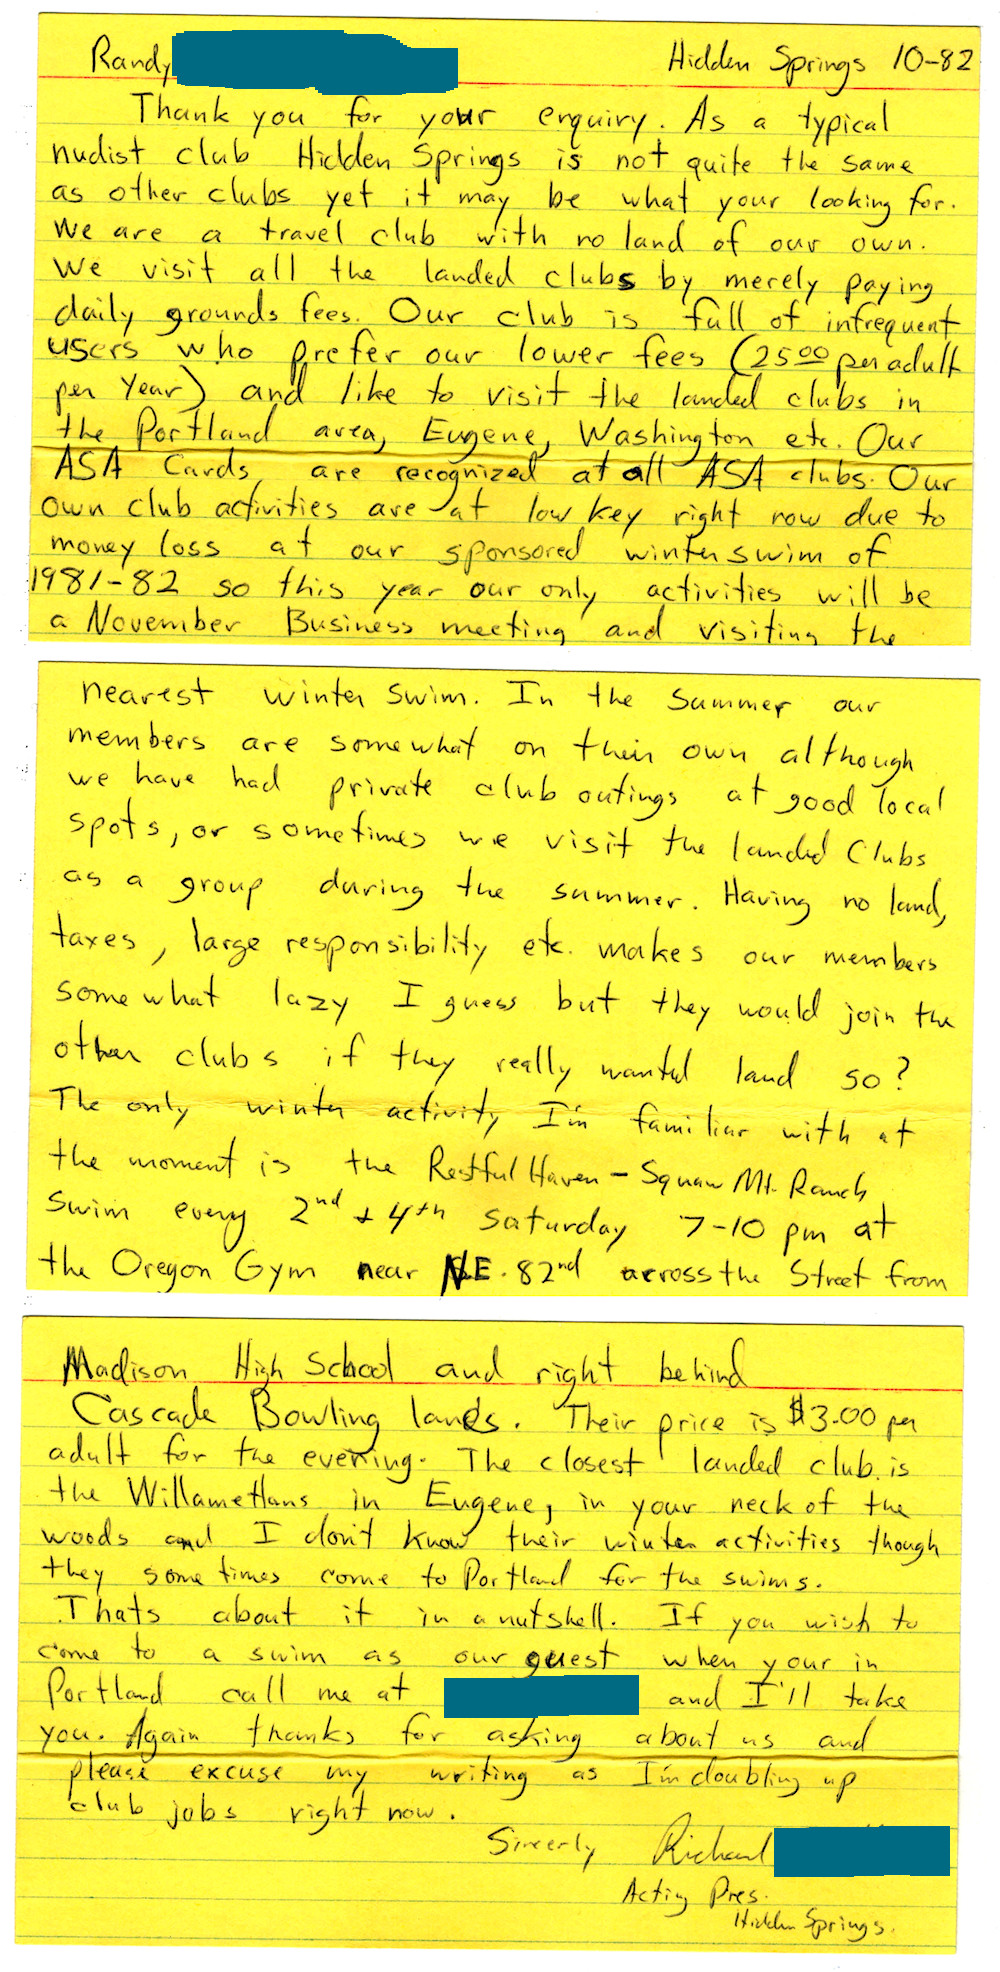 Randy Hidden Springs 10-82
Thank you for your enquiry. As a typical
nudist club Hidden Springs is not quite the same
as other clubs yet it may be what your looking for.
We are a travel club with no land of our own.
We visit all the landed clubs by merely paying
daily grounds fees. Our club is full of infrequent
users who prefer our lower fees (25.00 per adult
per Year) and like to visit the landed clubs in
the Portland area, Eugene, Washington etc. Our
ASA Cards, are recognized at all ASA clubs. Our
own club activities are at low key right now due to
money loss at our sponsored winter swim of
1981-82 so this year our only activities will be
a November Business meeting and visiting the
nearest winter swim. In the summer our
members are somewhat on their own although
we have had private club outings at good local
spots, or sometimes we visit the landed Clubs
as a group during the summer. Having no land,
taxes, large responsibility etc. makes our members
somewhat lazy I guess but they would join the
other clubs if they really wanted land so?
The only winter activity I'm familiar with at
the moment is the Restful Haven - Squaw Mt. Ranch
Swim every 2nd + 4th saturday 7-10 pm at
the Oregon Gym near N.E. 82nd across the Street from
Madison High School and right behind
Cascade Bowling lanes. Their price is $3.00 per
adult for the evening. The closest landed club is
the Willamettans in Eugene, in your neck of the
woods and I don't know their winter activities though
they some times come to Portland for the swims.
Thats about it in a nutshell. If you wish to
come to a swim as our guest when your in
Portland call me at and I'll take
you. Again thanks for asking about us and
please excuse my writing as I'm doubling up
club jobs right now.
Sincerly Richard
Acting Pres.
Hidden Springs.